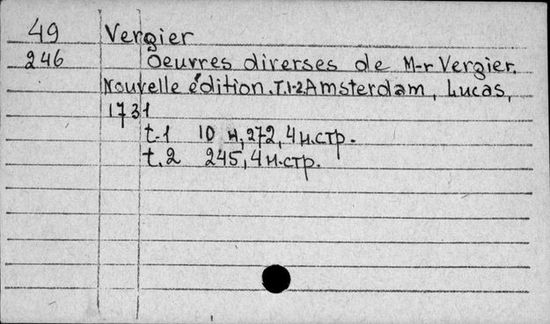 49 Vergier
246 Oeuvres diverses de M-r Vergier.
Nouvelle édition. T.1-2. Amsterdam, Lucas,
1731
t.1 10 н, 272, 4 н.стр.
t.2 245, 4 н.стр.